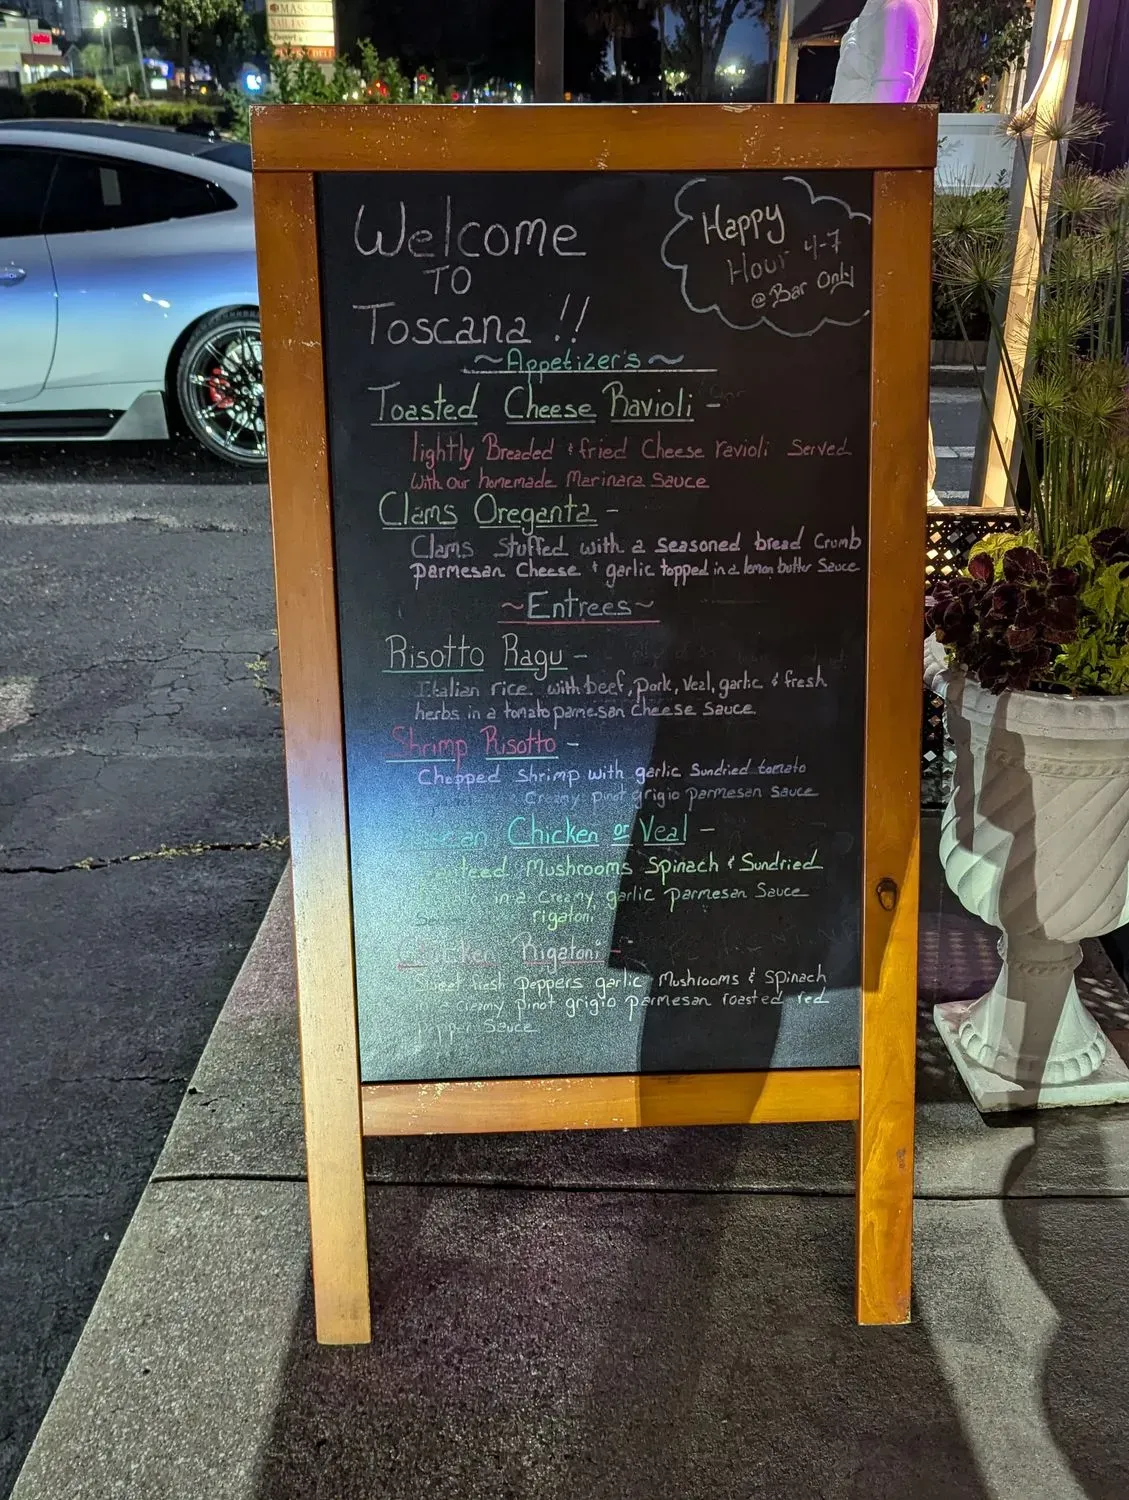 Welcome
TO
Toscana !!
Happy
Hour 4-7
@ Bar Only
~Appetizer's~
Toasted Cheese Ravioli -
lightly Breaded & fried Cheese ravioli Served
With our homemade Marinara Sauce
Clams Oreganta -
Clams Stuffed with a seasoned bread Crumb
parmesan Cheese & garlic topped in a lemon butter Sauce
~Entrees~
Risotto Ragu -
Italian rice with beef, pork, veal, garlic & fresh
herbs in a tomato parmesan Cheese Sauce
Shrimp Risotto -
Chopped shrimp with garlic Sundried tomato
creamy pinot grigio parmesan Sauce
Chicken or Veal -
Mushrooms Spinach & Sundried
in a creamy garlic parmesan Sauce
rigatoni
Chicken Rigatoni -
fresh peppers garlic Mushrooms & Spinach
creamy pinot grigio parmesan roasted red
Sauce